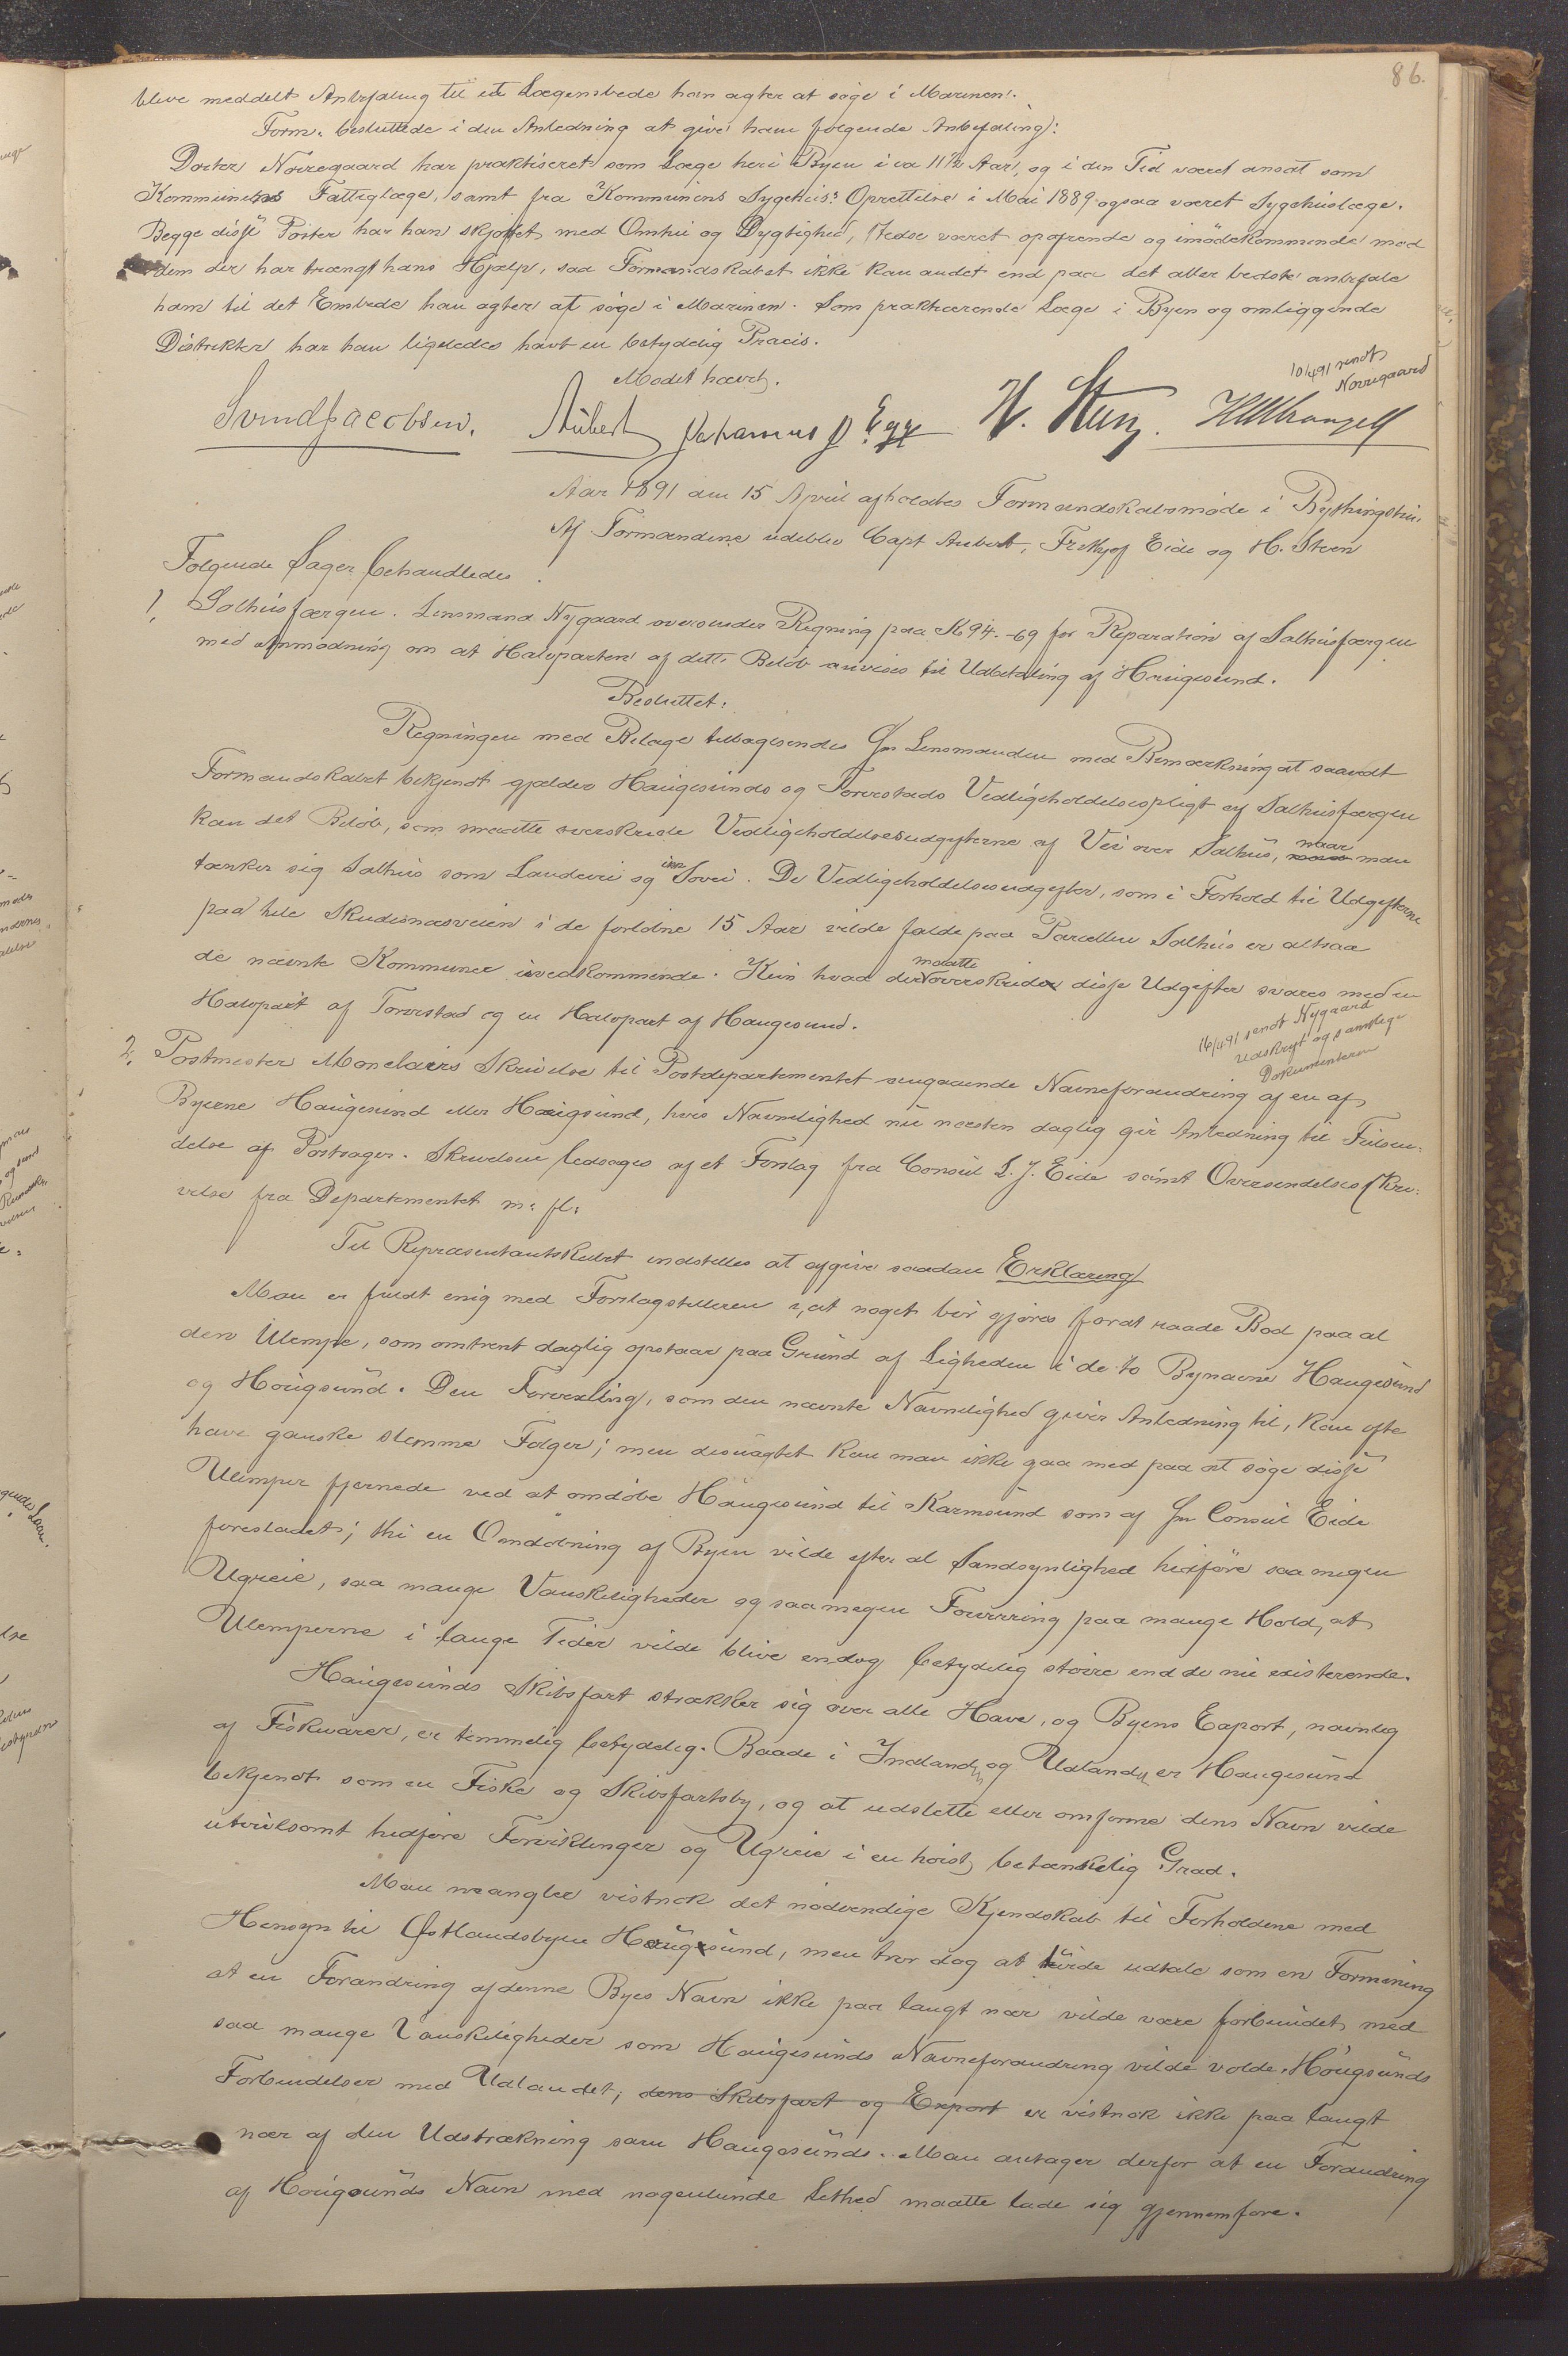 86.
blive meddelt Anbefaling til et Lægembede han agter at søge i Marinen.
Form. besluttede i den Anledning at give ham følgende Anbefaling:
Doctor Nørregaard har praktiseret som Læge her i Byen i ca 11½ Aar, og i den Tid været ansat som
Kommunens Fattiglæge, samt fra Kommunens Sygehus's Oprettelse i Mai 1889 ogsaa været Sygehuslæge.
Begge disse Poster har han skjøttet med Omhu og Dygtighed, været opofrende og imødekommende mod
dem der har trængt hans Hjælp, saa Formandskabet ikke kan andet end paa det aller bedste anbefale
ham til det Embede han agter at søge i Marinen. Som praktiserende Læge i Byen og omliggende
Distrikter har han ligeledes havt en betydelig Praxis.
Mødet hævet.
10/4 91 sendt
Nørregaard
Svend Jacobsen. Aubert Johannes J Egge H. Steen.
Aar 1891 den 15 April afholdtes Formandskabsmøde i Bythingshus.
Af Formændene udeblev Capt Aubert, Frithjof Eide og H. Steen
Følgende Sager behandledes
1. Salhusfærgen. Lensmand Nygaard oversender Regning paa K 94.-69 for Reparation af Salhusfærgen
med Anmodning om at Halvparten af dette Beløb anvises til Udbetaling af Haugesund.
Besluttet:
Regningen med Bilage tilbagesendes Hr Lensmanden med Bemærkning at saavidt
Formandskabet bekjendt gjælder Haugesunds og Torvestads Vedligeholdelsespligt af Salhusfærgen
kun det Beløb, som maatte overskride Vedligeholdelsesudgifterne af Vei over Salhus, naar man
tænker sig Salhus som Landevei og ikke Søvei. De Vedligeholdelsesudgifter, som i Forhold til Udgifterne
paa hele Skudesnæsveien i de forløbne 15 Aar vilde falde paa Parcellen Salhus er altsaa
de nævnte Kommuner uvedkommende. Kun hvad der maatte overskride disse Udgifter svares med en
Halvpart af Torvestad og en Halvpart af Haugesund.
16/4 91 sendt Nygaard
Udskrift og samtlige
Dokumenterne
2. Postmester Monclairs Skrivelse til Postdepartementet angaaende Navneforandring af en af
Byerne Haugesund eller Hougsund, hvis Navnelighed nu næsten daglig gir Anledning til Feilsen-
delse af Postsager. Skrivelsen ledsages af et Forslag fra Consul L. J. Eide samt Oversendelses skri-
velse fra Departementet m. fl.
Til Repræsentantskabet indstilles at afgive saadan Erklæring
Man er fuldt enig med Forslagstilleren i, at noget bør gjøres for at raade Bod paa al
den Ulempe, som omtrent daglig opstaar paa Grund af Ligheden i de to Bynavne Haugesund
og Hougsund. Den Forvexling, som den nævnte Navnelighed giver Anledning til, kan ofte
have ganske slemme Følger; men desuagtet kan man ikke gaa med paa at søge disse
Ulemper fjernede ved at omdøbe Haugesund til Karmsund som af Hr Consul Eide
foreslaaet; thi en Omdøbning af Byen vilde efter al Sandsynlighed hidføre saa megen
Ugreie, saa mange Vanskeligheder og saa megen Forvirring paa mange Hold, at
Ulemperne i lange Tider vilde blive endog betydelig større end de nu existerende.
Haugesunds Skibsfart strækker sig over alle Have, og Byens Export, navnlig
af Fiskevarer, er temmelig betydelig. Baade i Indland og Udland er Haugesund
bekjendt som en Fiske og Skibsfartsby, og at udslette eller omforme dens Navn vilde
utvilsomt hidføre Forviklinger og Ugreie i en høist betænkelig Grad.
Man mangler vistnok det nødvendige Kjendskab til Forholdene med
Hensyn til Østlandsbyen Hougsund, men tror dog at turde udtale som en Formening
at en Forandring af denne Byes Navn ikke paa langt nær vilde være forbundet med
saa mange Vanskeligheder som Haugesunds Navneforandring vilde volde. Hougsunds
Forbindelser med Udlandet, dens Skibsfart og Export er vistnok ikke paa langt
nær af den Udstrækning som Haugesunds. Man antager derfor at en Forandring
af Hougsunds Navn med nogenlunde Lethed maatte lade sig gjennemføre.